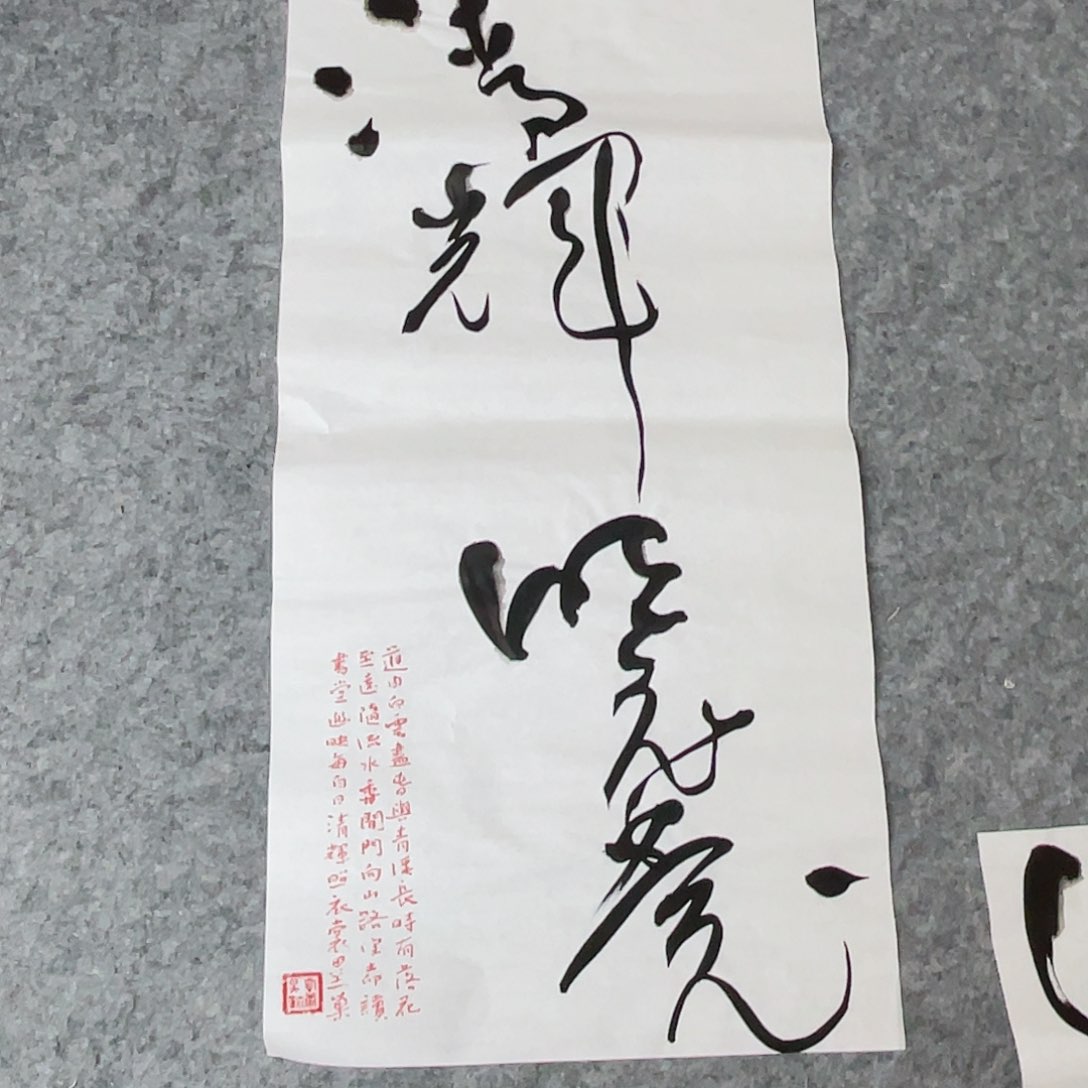 清輝
道由白雲盡春與青溪長時有落花
至遠隨流水香閒門向山路深柳讀
書堂幽映每白日清輝照衣裳